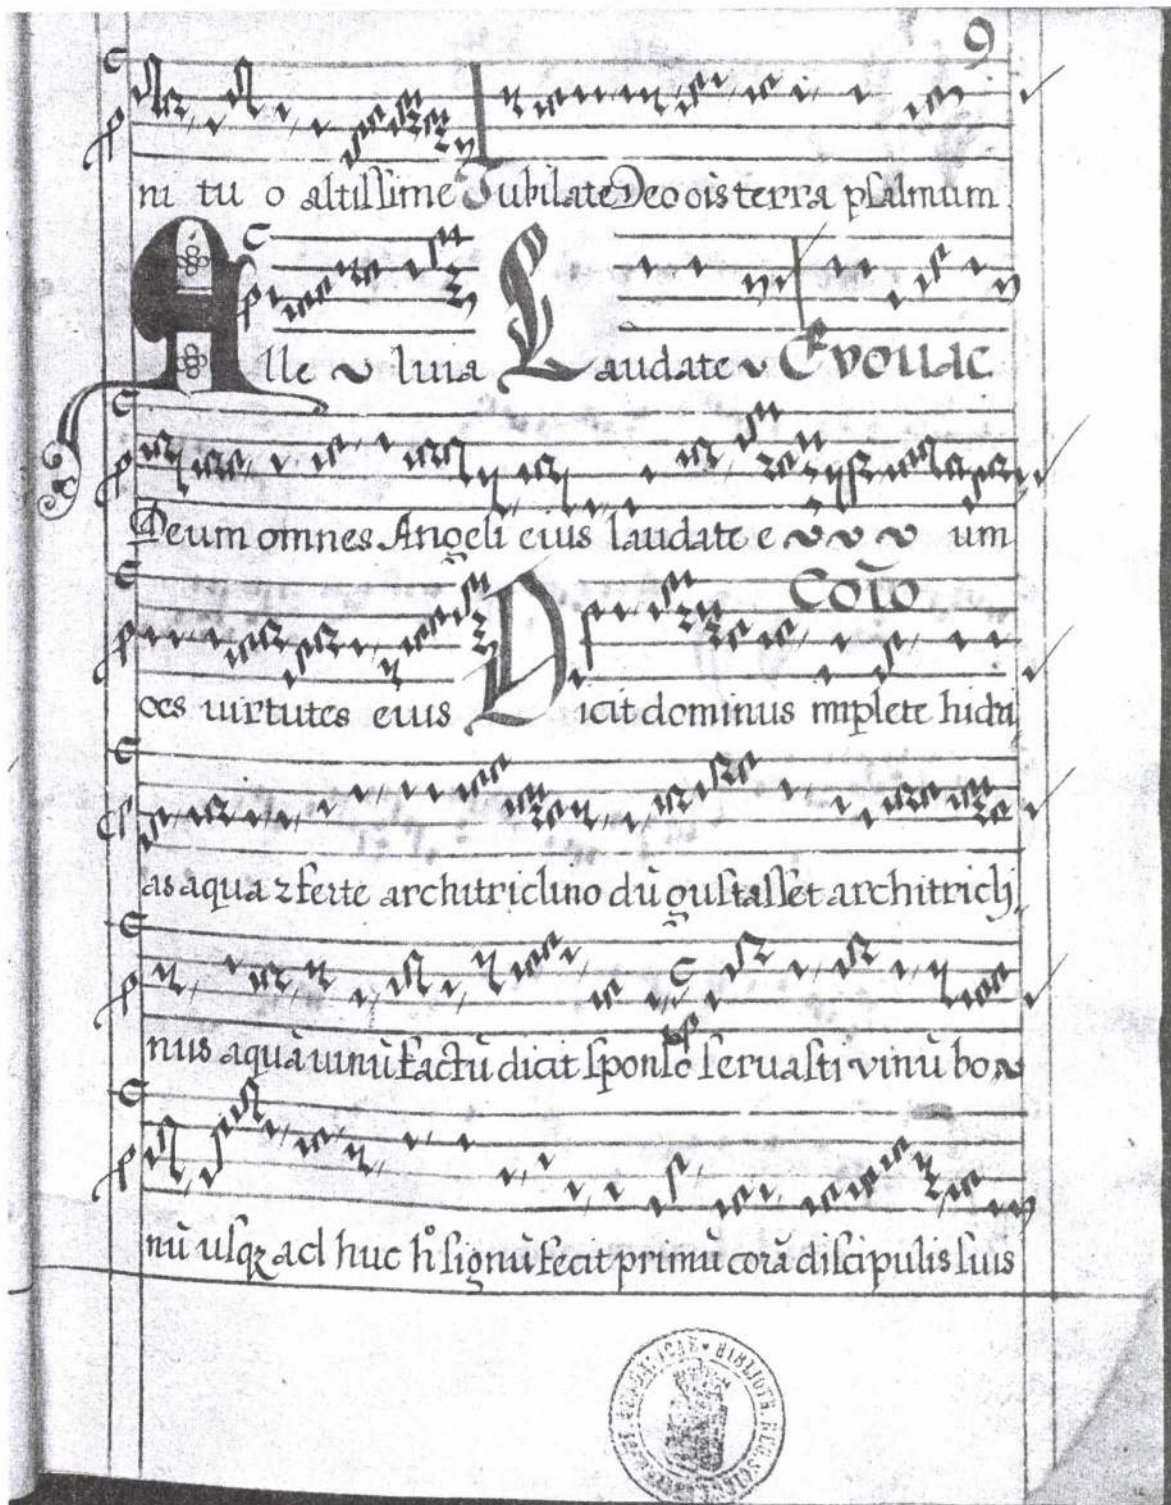 9
ni tu o altissime Jubilate Deo ois terra psalmum
Alle luia Laudate Evouae
Deum omnes Angeli eius laudate e um
Coīo
oes uirtutes eius Dicit dominus implete hidri
as aqua z ferte architriclino dū gustasset architricli
nus aquā uinū factū dicit sponso seruasti vinū bo
nū usqz ad huc h° signū fecit primū corā discipulis suis